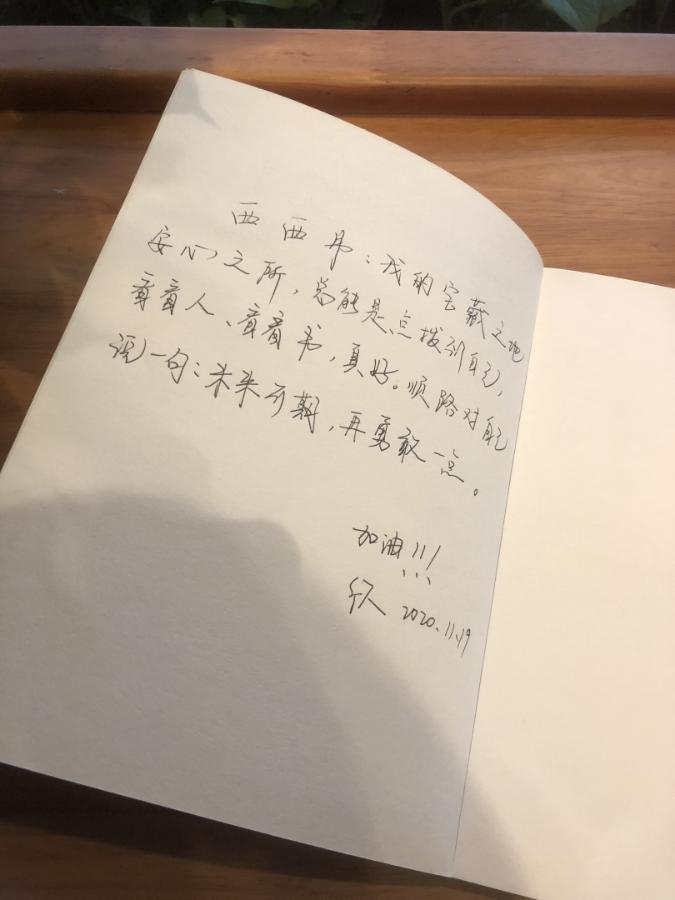 西西弗:我的宝藏之地
安心之所,总能是点拨到自己,
看看人、看看书,真好。顺路对自己
说一句:未来可期,再勇敢一点。
加油!!!
行人 2020.11.19